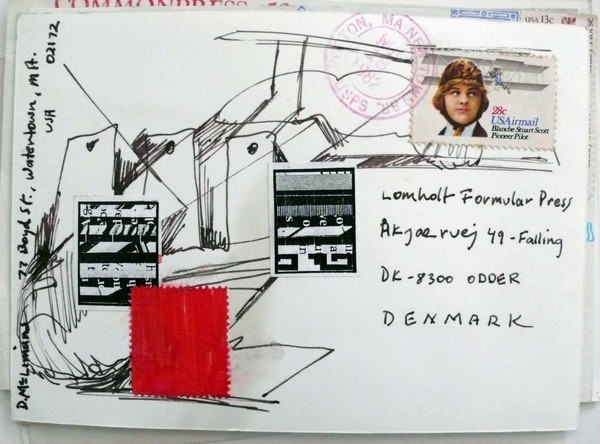 COMMONPRESS
USA 13c
BOSTON, MA
1982
USPS
28c
USAirmail
Blanche Stuart Scott
Pioneer Pilot
Lomholt Formular Press
Åkjaervej 49 - Falling
DK-8300 ODDER
DENMARK
D. McLimans 77 Boyd St., Watertown, MA.
02172
USA